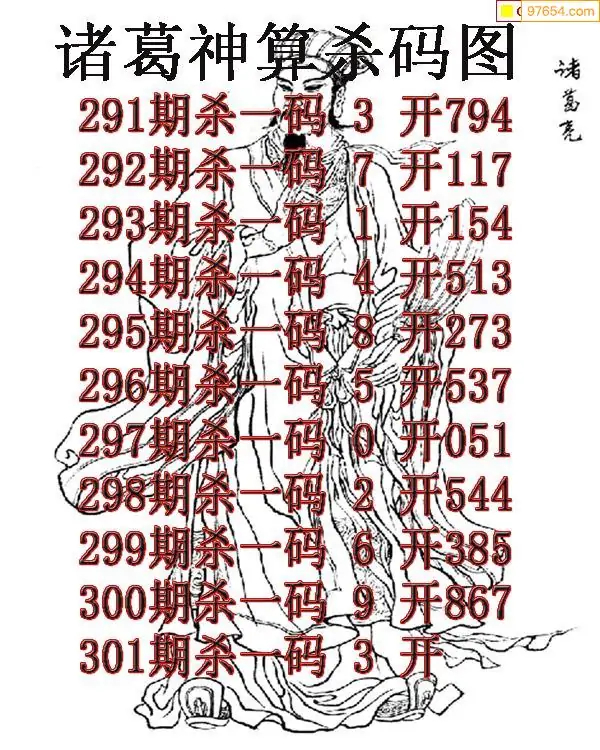 97654.com
诸葛神算杀码图
诸葛亮
291期杀一码 3 开794
292期杀一码 7 开117
293期杀一码 1 开154
294期杀一码 4 开513
295期杀一码 8 开273
296期杀一码 5 开537
297期杀一码 0 开051
298期杀一码 2 开544
299期杀一码 6 开385
300期杀一码 9 开867
301期杀一码 3 开